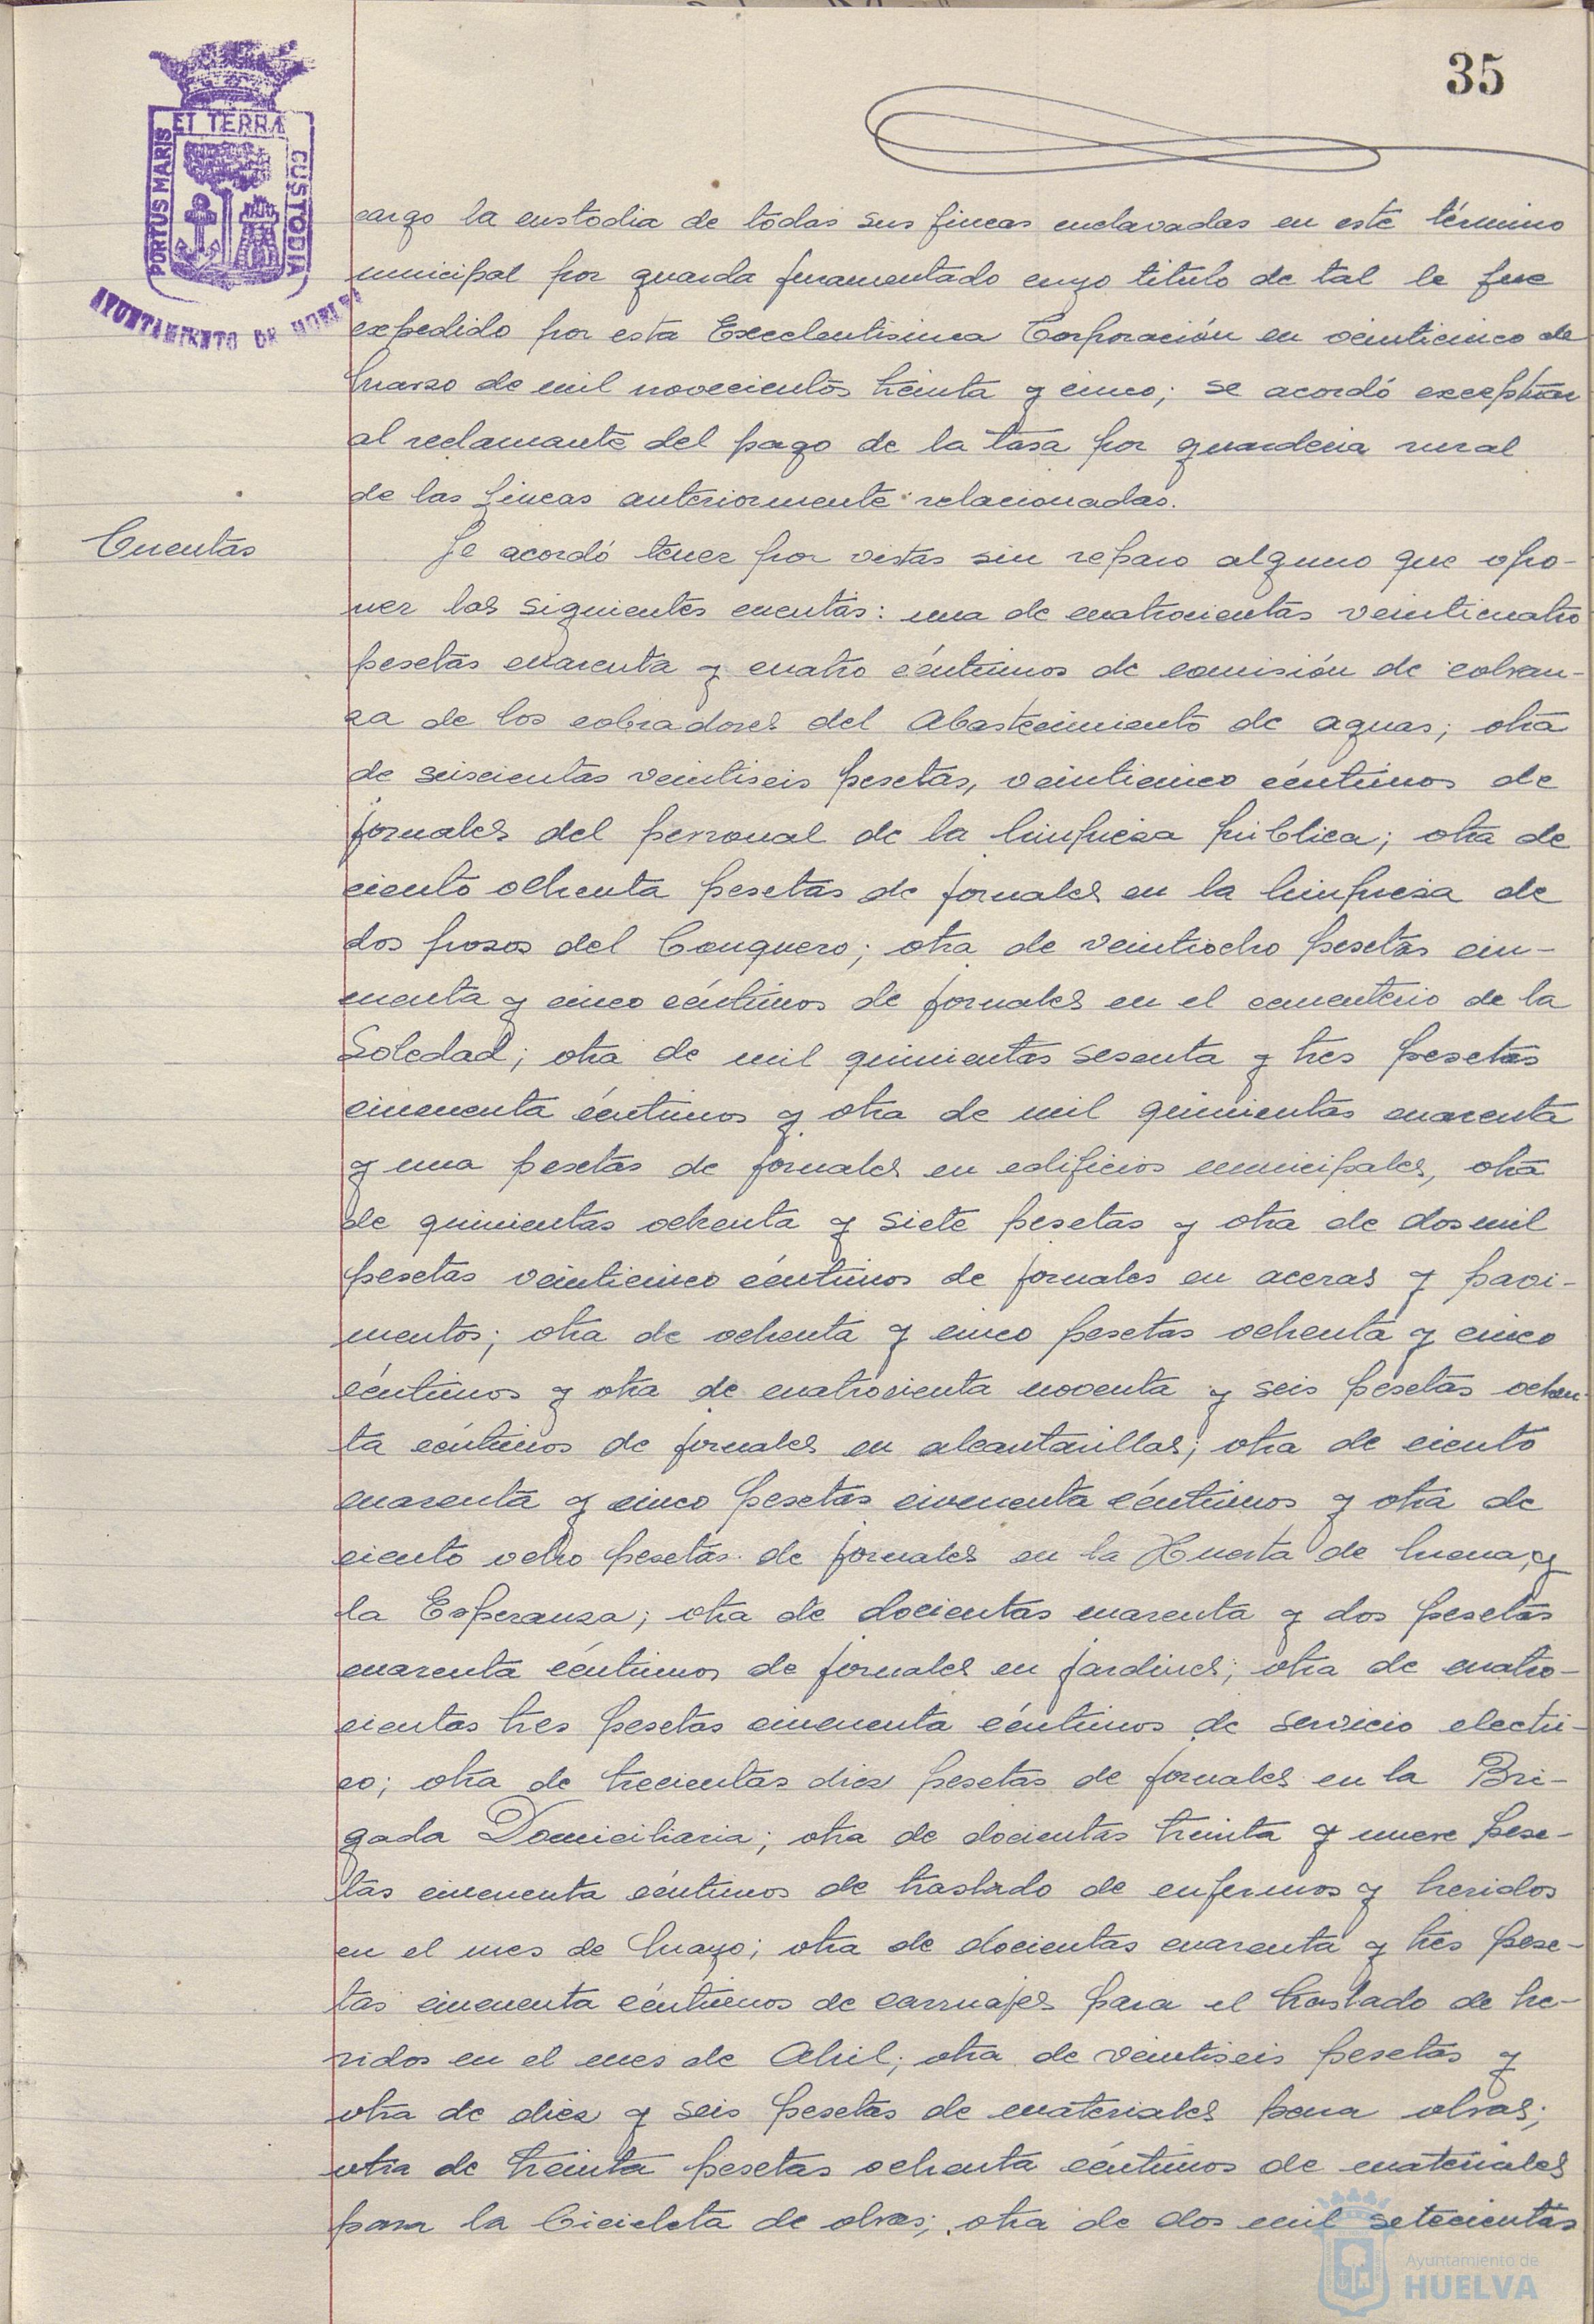 35
ET TERRA
PORTUS MARIS
CUSTODIA
AYUNTAMIENTO DE HUELVA
cargo la custodia de todas sus fincas enclavadas en este término
municipal por guarda juramentado cuyo titulo de tal le fue
expedido por esta Excelentisima Corporación en veinticinco de
Marzo de mil novecientos treinta y cinco; se acordó exceptuar
al reclamante del pago de la tasa por guarderia rural
de las fincas anteriormente relacionadas.
Cuentas
Se acordó tener por vistas sin reparo alguno que opo-
ner las siguientes cuentas: una de cuatrocientas veinticuatro
pesetas cuarenta y cuatro céntimos de comisión de cobran-
za de los cobradores del Abastecimiento de aguas; otra
de seiscientas veintiseis pesetas, veinticinco céntimos de
jornales del personal de la limpieza pública; otra de
ciento ochenta pesetas de jornales en la limpieza de
dos pozos del Conquero; otra de veintiocho pesetas cin-
cuenta y cinco céntimos de jornales en el cementerio de la
Soledad; otra de mil quinientas sesenta y tres pesetas
cincuenta céntimos y otra de mil quinientas cuarenta
y una pesetas de jornales en edificios municipales, otra
de quinientas ochenta y siete pesetas y otra de dos mil
pesetas veinticinco céntimos de jornales en aceras y pavi-
mentos; otra de ochenta y cinco pesetas ochenta y cinco
céntimos y otra de cuatrocienta noventa y seis pesetas ochen-
ta céntimos de jornales en alcantarillas; otra de ciento
cuarenta y cinco pesetas cincuenta céntimos y otra de
ciento ocho pesetas de jornales en la Huerta de Mena, y
la Esperanza; otra de docientas cuarenta y dos pesetas
cuarenta céntimos de jornales en jardines; otra de cuatro-
cientas tres pesetas cincuenta céntimos de servicio electri-
co; otra de trecientas diez pesetas de jornales en la Bri-
gada Domiciliaria; otra de docientas treinta y nueve pese-
tas cincuenta céntimos de traslado de enfermos y heridos
en el mes de Mayo; otra de docientas cuarenta y tres pese-
tas cincuenta céntimos de carruajes para el traslado de he-
ridos en el mes de Abril; otra de veintiseis pesetas y
otra de diez y seis pesetas de materiales para obras;
otra de treinta pesetas ochenta céntimos de materiales
para la bicicleta de obras; otra de dos mil setecientas
Ayuntamiento de
HUELVA